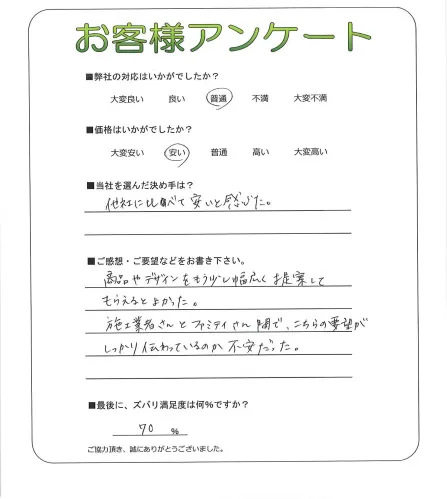 お客様アンケート
■弊社の対応はいかがでしたか？
大変良い　良い　普通　不満　大変不満
■価格はいかがでしたか？
大変安い　安い　普通　高い　大変高い
■当社を選んだ決め手は？
他社に比べて安いと感じた。
■ご感想・ご要望などをお書き下さい。
商品やデザインをもう少し幅広く提案して
もらえるとよかった。
施工業者さんとファミティさん間で、こちらの要望が
しっかり伝わっているのか不安だった。
■最後に、ズバリ満足度は何%ですか？
70 %
ご協力頂き、誠にありがとうございました。